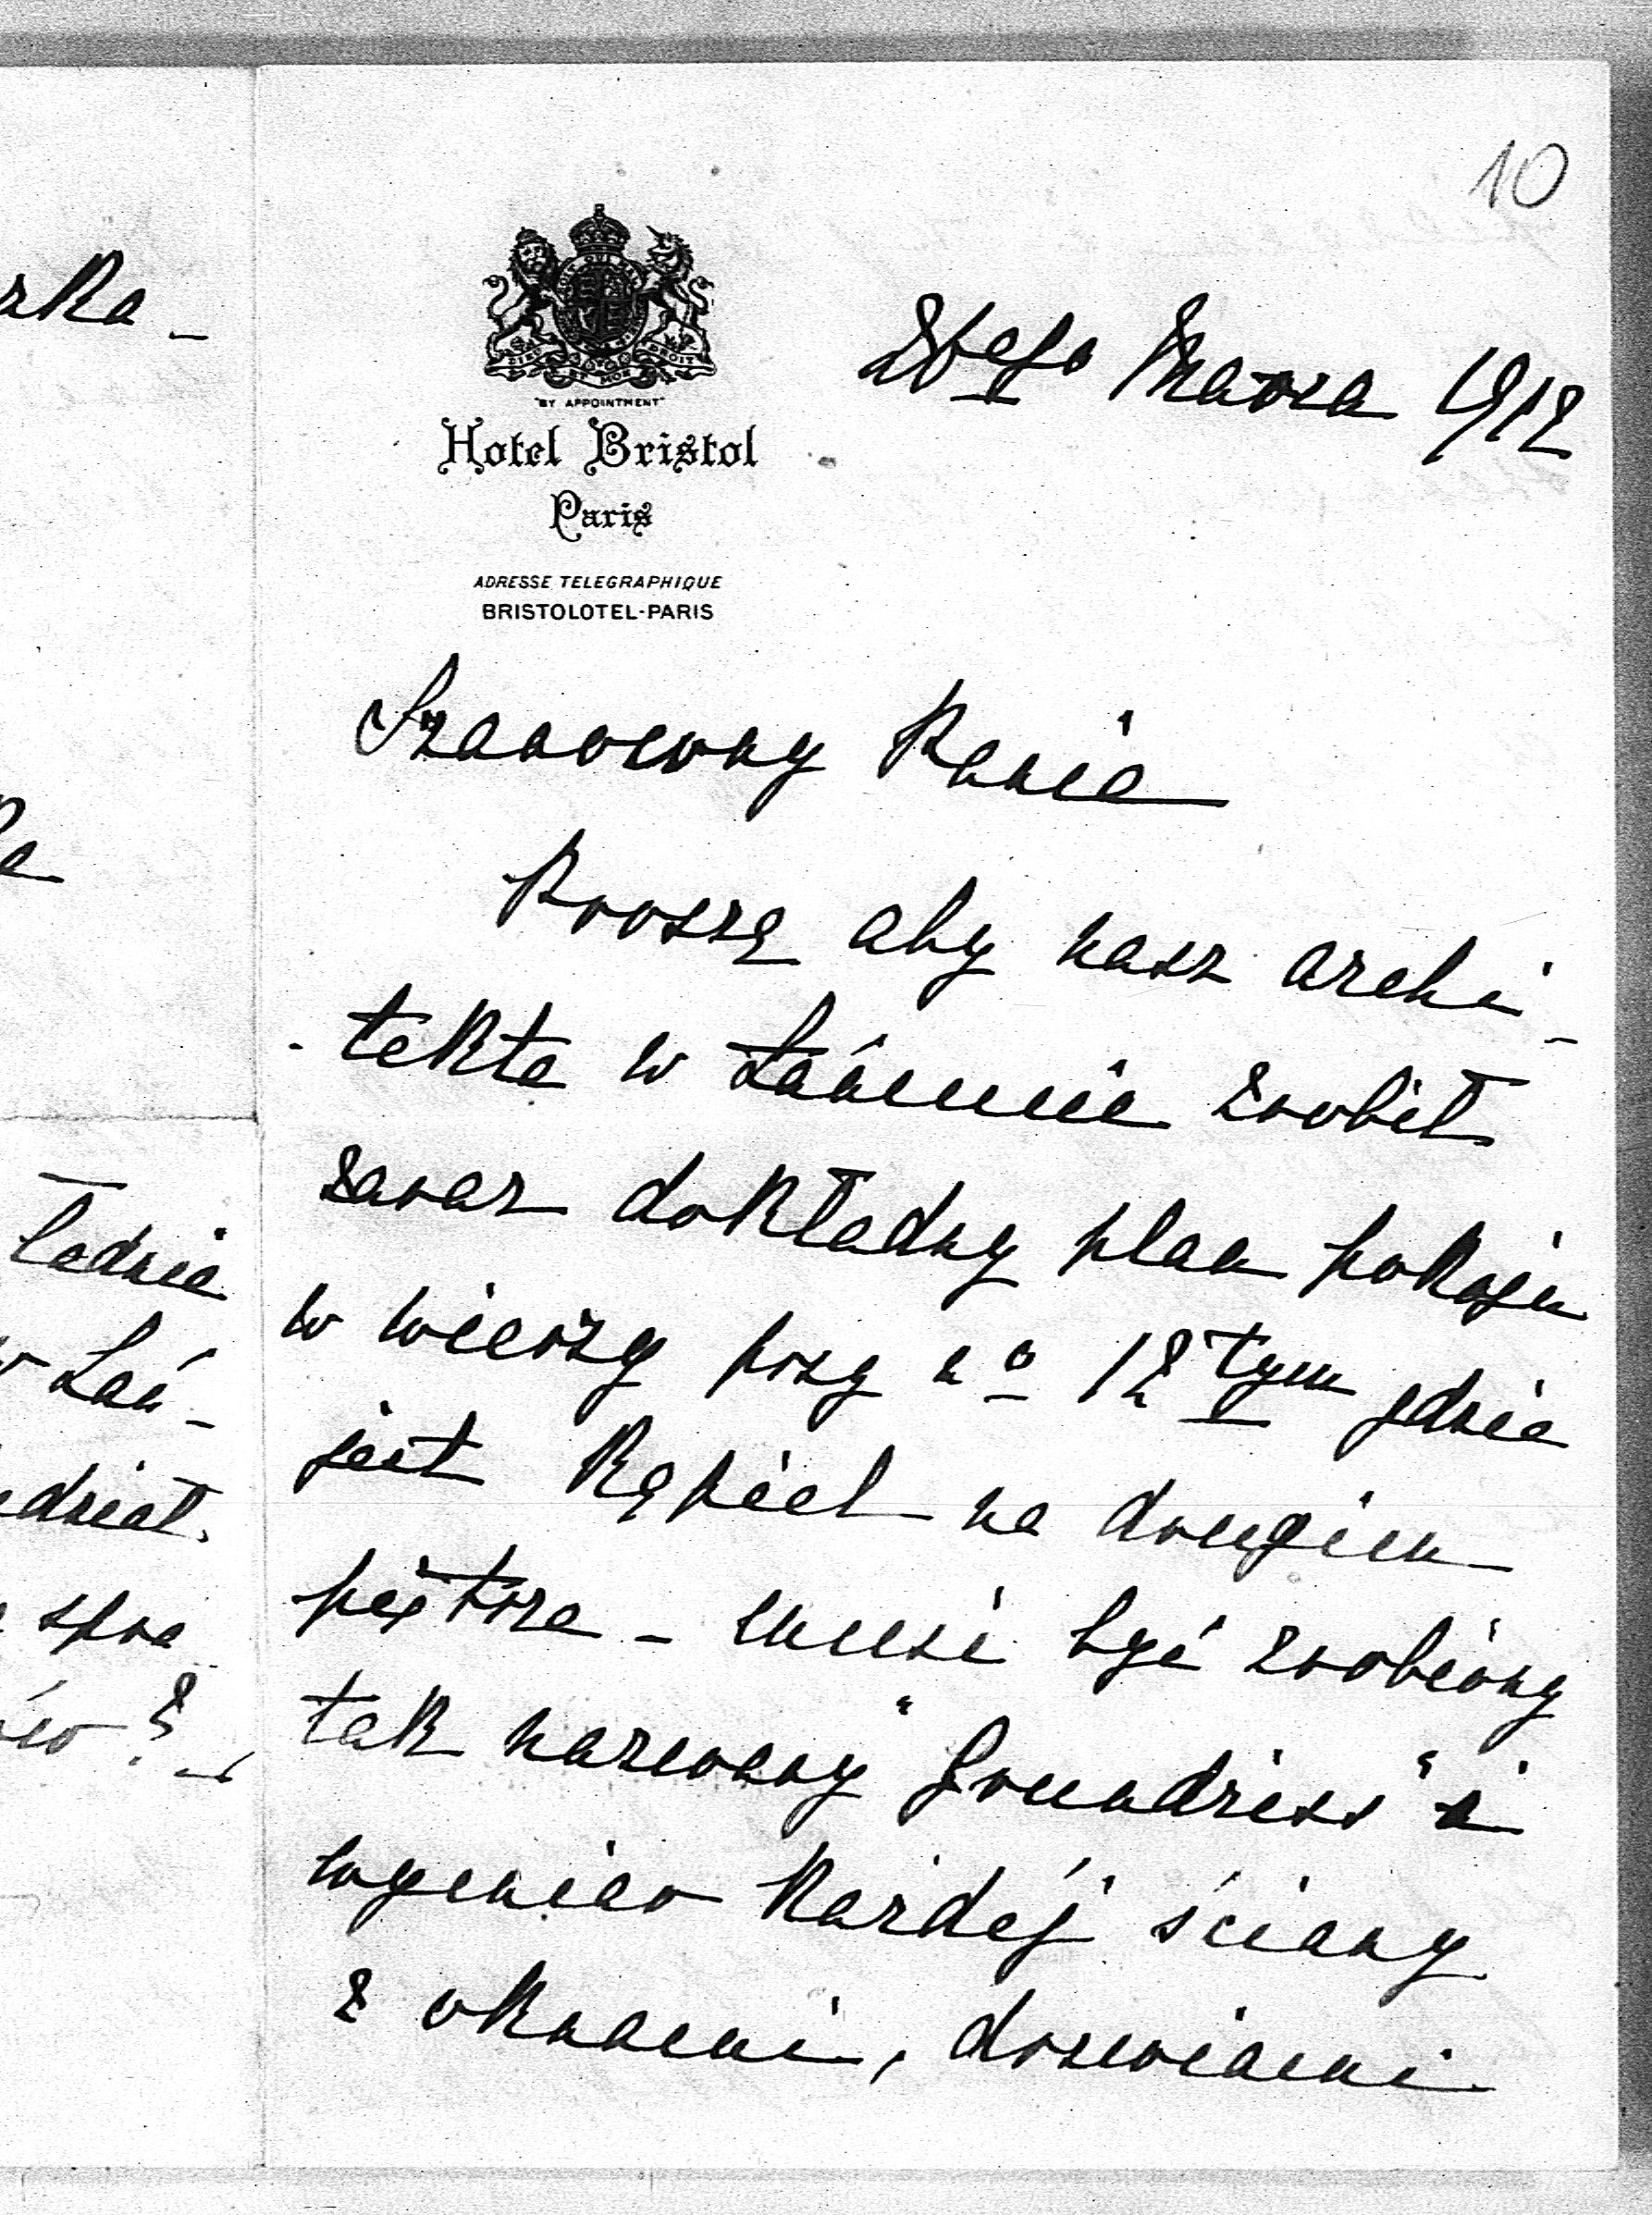 10
"BY APPOINTMENT"
Hotel Bristol
Paris
ADRESSE TELEGRAPHIQUE
BRISTOLOTEL-PARIS
Marca 1912
Szanowny Panie
Proszę aby nasz archi-
tekta w Łańcucie zrobił
zaraz dokładny plan pokoju
w wieży przy no 12tym gdzie
jest kąpiel na drugim
piętrze - musi być zrobiony
tak nazwany "Grundriss" i
wymiar każdéj ściany
z oknami, drzwiami
ładzie
Łań-
dział
spra